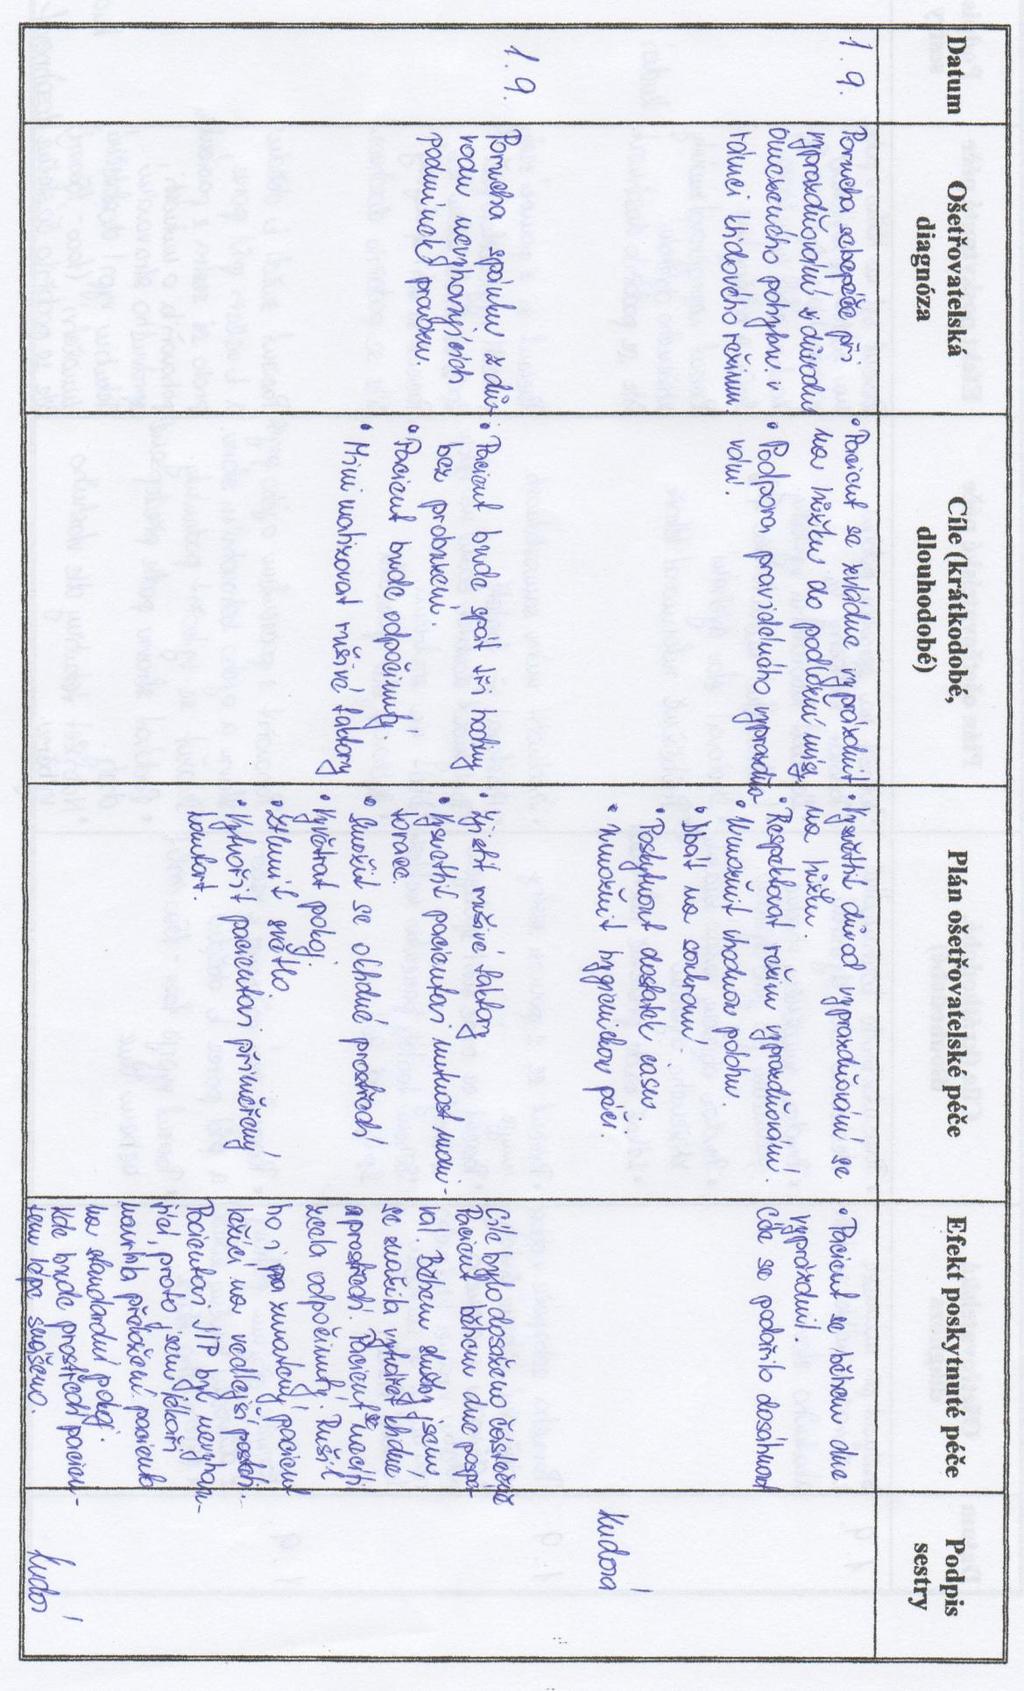 Datum
Ošetřovatelská
diagnóza
Cíle (krátkodobé,
dlouhodobé)
Plán ošetřovatelské péče
Efekt poskytnuté péče
Podpis
sestry
1.9.
Porucha sebepéče při
vyprazdňování z důvodu
omezeného pohybu v
rámci klidového režimu.
• Pacient se zvládne vyprázdnit
na lůžku do podložní mísy.
• Podpora pravidelného vyprazdňo
vání.
• Vysvětlit důvod vyprazdňování se
na lůžku.
• Respektovat režim vyprazdňování.
• Umožnit vhodnou polohu.
• Dbát na soukromí.
• Poskytnout dostatek času.
• Umožnit hygienickou péči.
• Pacient se během dne
vyprázdnil.
Cíle se podařilo dosáhnout
Kudová
1.9.
Porucha spánku z dů-
vodu nevyhovujících
podmínek prostředí.
• Pacient bude spát tři hodiny
bez probuzení.
• Pacient bude odpočinutý.
• Minimalizovat rušivé faktory
• Zjistit rušivé faktory
• Vysvětlit pacientovi nutnost moni-
torace.
• Snažit se o klidné prostředí
• Vyvětrat pokoj.
• Ztlumit světlo.
• Vytvořit pacientovi přiměřený
komfort.
Cíle bylo dosaženo částečně
Pacient během dne pospá-
val. Během služby jsem
se snažila vytvořit klidné
prostředí. Pacient se necítil
zcela odpočinutý. Rušil
ho i zmatený pacient
ležící na vedlejší posteli.
Pacientovi JIP byl nevyhov-
, proto jsem lékaři
navrhla přeložení pacienta
na standardní pokoj.
Kde bude prostředí pacien-
tem lépe snášeno.